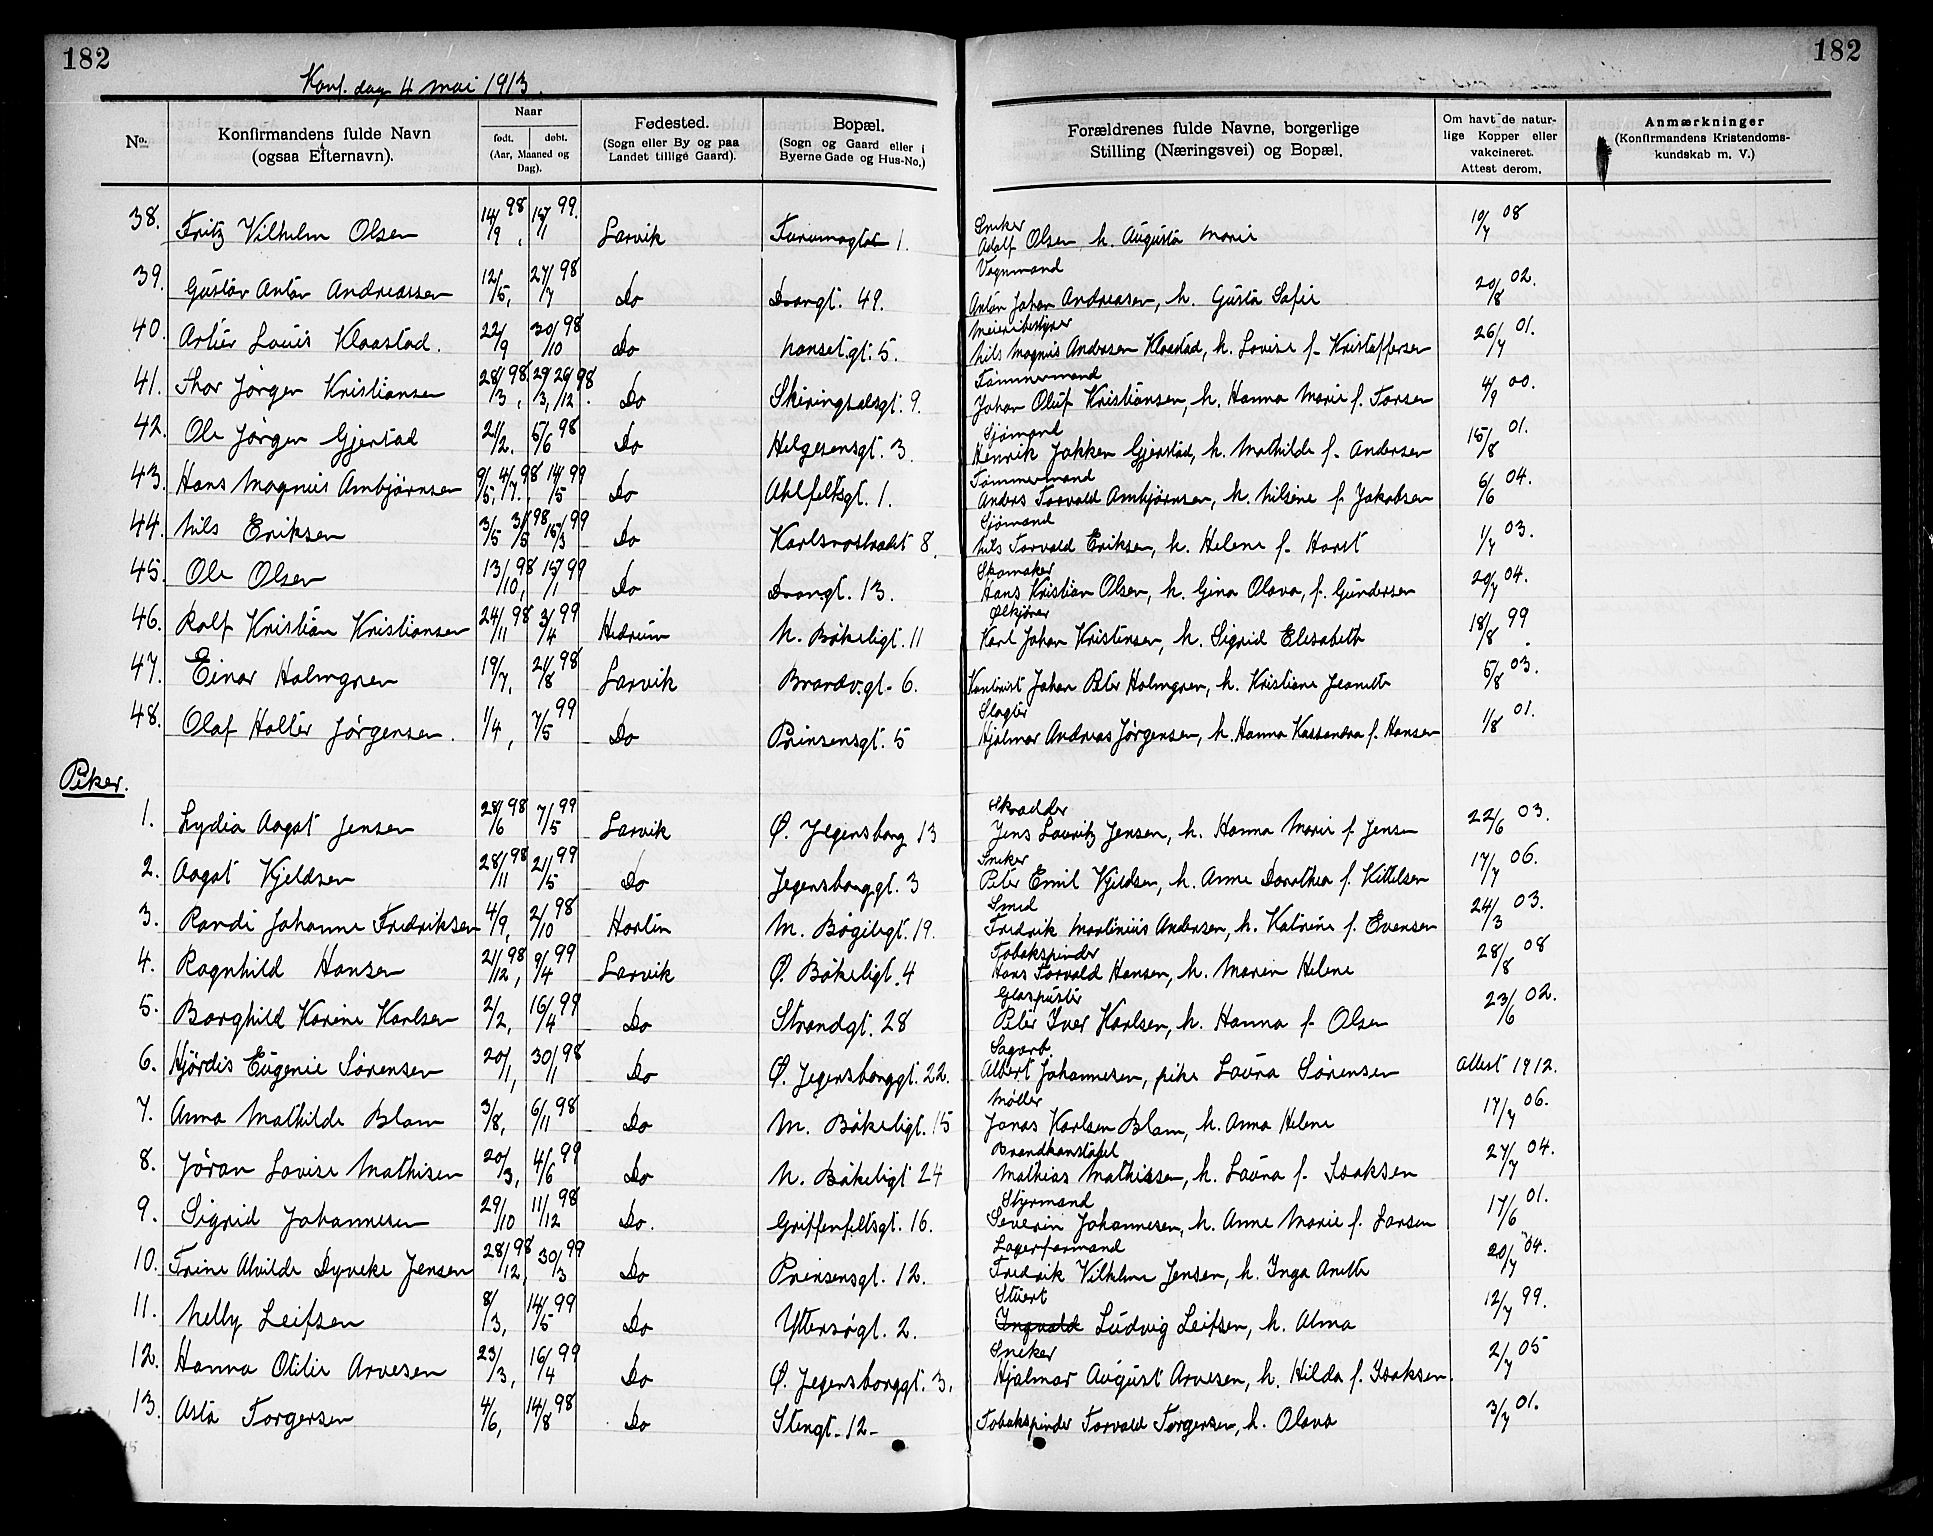 182
182
Konf. dag 4 mai 1913.
No.
Konfirmandens fulde Navn
(ogsaa Efternavn).
Naar
født. døbt.
(Aar, Maaned og
Dag).
Fødested.
(Sogn eller By og paa
Landet tillige Gaard).
Bopæl.
(Sogn og Gaard eller i
Byerne Gade og Hus-No.)
Forældrenes fulde Navne, borgerlige
Stilling (Næringsvei) og Bopæl.
Om havt de natur-
lige Kopper eller
vakcineret.
Attest derom.
Anmærkninger
(Konfirmandens Kristendoms-
kundskab m. V.)
38. Fritz Vilhelm Olsen 14/9 98, 15/1 99. Larvik 1. Sneker Adolf Olsen h. Augusta Marie 10/7 08
39. Gustav Anton Andreassen 12/5, 27/7 98 Do Dronngt. 49. Vognmand Anton Johan Andreasen, h. Gusta Sofie 20/8 02.
40. Artur Louis Klaastad. 22/9 30/10 98 Do Nansetgt. 5. Meieribestyrer Nils Magnus Andrasen Klaastad, h. Lovise f. Kristoffersen 26/7 01.
41. Thor Jörgen Kristiansen 28/3 98, 29/3, 26/12 98. Do Skiringsalsgt. 9. Tömmermand Johan Oluf Kristiansen, h. Hanna Marie f. Larsen 4/9 00.
42. Ole Jörgen Gjerstad 21/2. 5/6 98 Do Helgesensgt. 3. Sjömand Henrik Jokken Gjerstad, h. Mathilde f. Andersen 15/8 01.
43. Hans Magnus Ambjörnsen 9/5, 4/7 98, 14/5 99 Do Ahlfeltsgt. 1. Tömmermand Anders Torvald Ambjörnsen, h. Nilsine f. Jakobsen 6/6 04.
44. Nils Eriksen 3/5 3/5 98 15/3 99 Do 8. Sjömand Nils Torvald Eriksen, h. Helene f. Horst 1/7 03.
45. Ole Olsen 13/10 98, 15/1 99 Do Dronngt. 13. Skomaker Hans Kristian Olsen, h. Gina Olava, f. Gundersen 29/7 04.
46. Rolf Kristian Kristiansen 24/11 98 3/4 99 Hedrum N. Bökeligt. 11 Ölkjörer Karl Johan Kristensen, h. Sigrid Elesabeth 18/8 99
47. Einar Holmgren 19/7, 21/8 98 Larvik Brandv.gt. 6. Johan Peter Holmgren, h. Kristiane Jeanette 5/8 03.
48. Olaf Holter Jörgensen. 1/4, 7/5 99 Do Prinsensgt. 5 Slagter Hjalmar Andreas Jörgensen, h. Hanna Kassandra f. Hansen 1/8 01.
Piker.
1. Lydia Aagot Jensen 28/6 98 7/5 99 Larvik Ø. Jegersborg 13 Skrædder Jens Lauritz Jensen, h. Hanna Marie f. Jensen 22/6 03.
2. Aagot Kjeldsen 28/11 98 21/5 99 Do Jegersborggt. 3 Sneker Peter Emil Kjeldsen, h. Anne Dorothea f. Kittelsen 17/7 06.
3. Randi Johanne Fredriksen 4/9, 2/10 98 Horten M. Bögeligt. 19. Smed Fredrik Martinius Andersen, h. Katrine f. Evensen 24/3 03.
4. Ragnhild Hansen 21/12 98, 9/4 99 Larvik Ø. Bökeligt. 4 Tobakspinder Hans Torvald Hansen, h. Maren Helene 28/8 08
5. Borghild Karine Karlsen 2/2, 16/4 99 Do Strandgt. 28 Glaspuster Peter Iver Karlsen, h. Hanna f. Olsen 23/6 02.
6. Hjördis Eugenie Sörensen 20/1, 30/1 98 Do Ø. Jegersborggt. 22. Sagarb. Albert Johannesen, pike Laura Sörensen Attest 1912.
7. Anna Mathilde Blam 3/8, 6/11 98 Do M. Bökeligt. 15 Möller Jonas Karlsen Blam, h. Anna Helene 17/7 06.
8. Jöran Lovise Mathisen 20/3, 4/6 99 Do N. Bökeligt 24 Brandkonstabel Mathias Mathissen, h. Laura f. Isaksen 27/7 04.
9. Sigrid Johannesen 29/10 11/12 98 Do. Griffenfeltsgt. 16. Styrmand Severin Johannesen, h. Anne Marie f. Larsen 17/6 01.
10. Trine Alvilde Dyveke Jensen 28/12 98, 30/3 99 Do Prinsensgt. 12. Lagerformand Fredrik Vilhelm Jensen, h. Inga Anette 20/7 04.
11. Nelly Leifsen 8/3, 14/5 99 Do Yttersögt. 2. Stuert Ingvald Ludvig Leifsen, h. Alma 12/7 99.
12. Hanna Otilie Arvesen 23/3, 16/4 99 Do Ø. Jegersborggt. 3. Sneker Hjalmar August Arvesen, h. Hilda f. Isaksen. 2/7 05
13. Asta Torgersen 4/6, 14/8 98 Do Stengt. 12- Tobakspinder Torvald Torgersen, h. Olava 3/7 01.